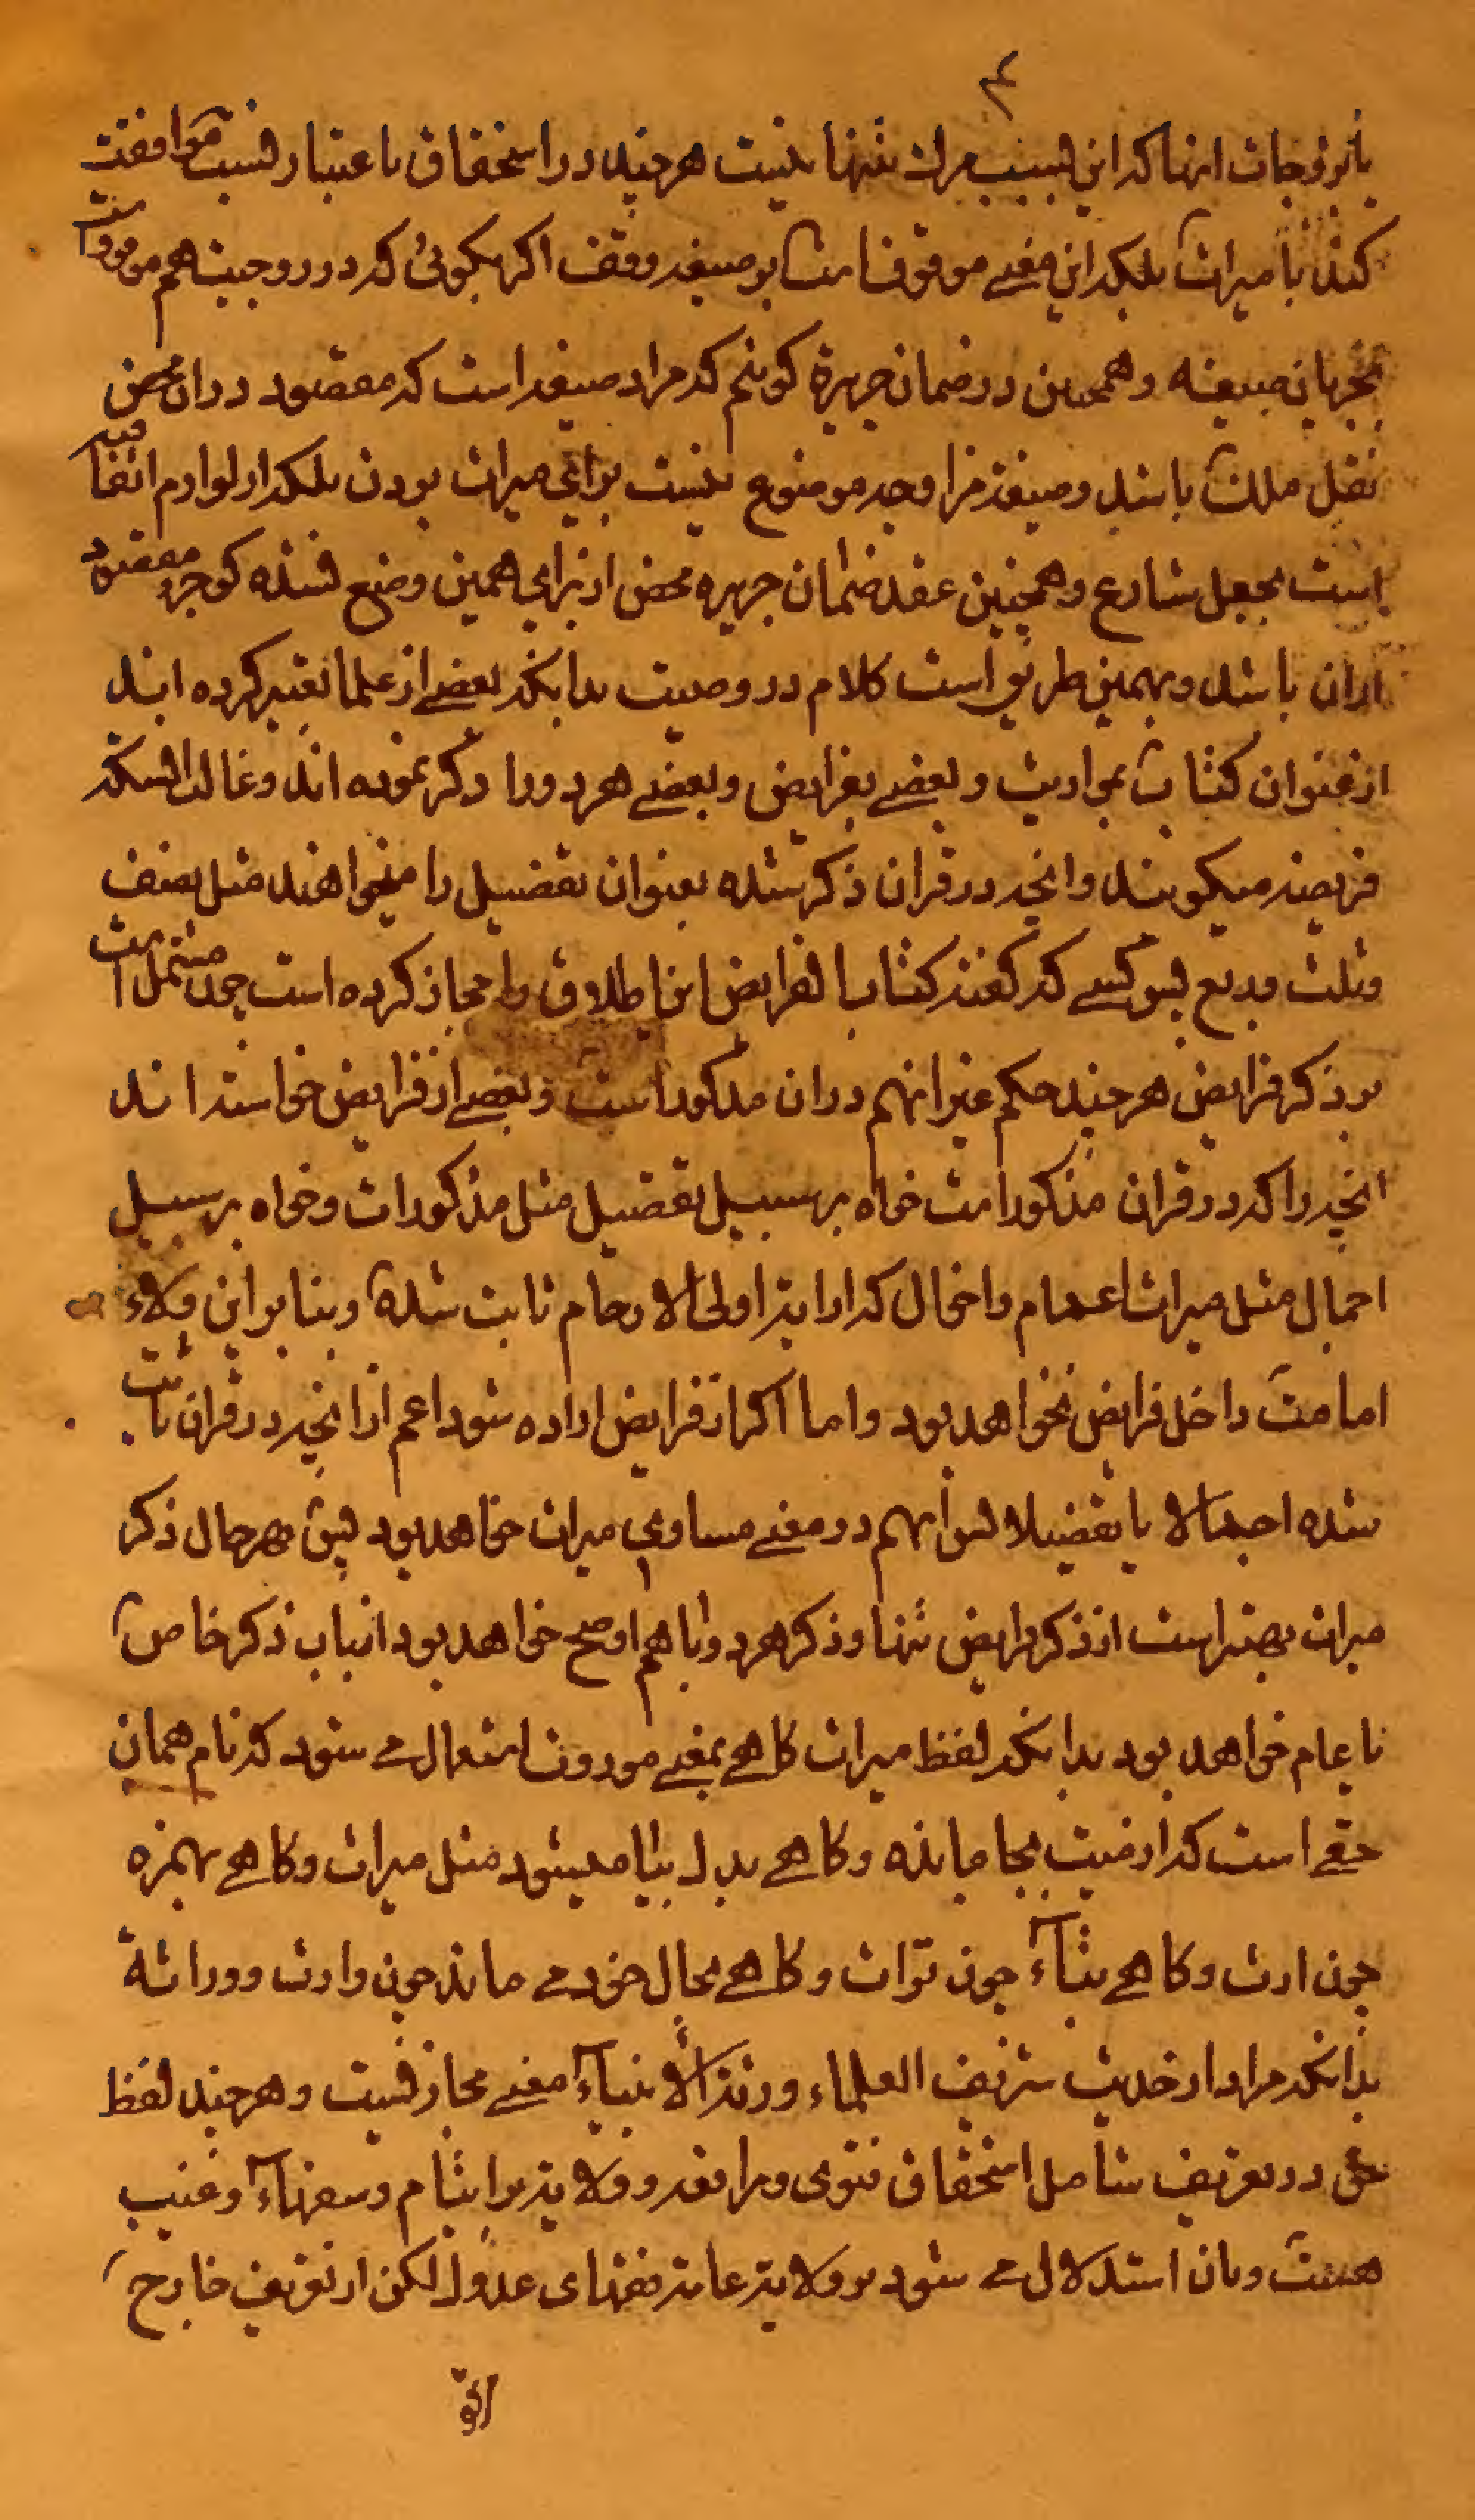 ۴
یا زوجات انها که این بسبب مرك تنها نیست هرچند در استحقاق باعتبار نسب موافقت
کند با میراث بلکه این معنے موقوفست بر صیغه وقف اکر بکوئی که در زوجیت هم موقوفست
بجریان صیغه وهمچنین در ضمان جریرة کوئیم که مراد صیغه است که مقصود دران محض
نقل ملك باشد وصیغهٔ مزاوجه موضوع نیست برای میراث بودن بلکه از لوازم اتفاقیه
است بجعل شارع وهمچنین عقد ضمان جریره محض از برای همین وضع نشده کو جزو مقصود
ازان باشد وبهمین طریق است کلام در وصیت بدانکه بعضے از علما تعبیر کرده اند
از عنوان کتاب بمواریث و بعضے بفرایض وبعضے هردو را ذکر نموده اند وغالب انستکه
فریضه میکویند وانچه در قران ذکر شده بعنوان تفضیل را میخواهند مثل نصف
وثلث وربع پس کسے که کفته کتاب الفرایض این اطلاق را مجاز کرده است چون مشتمل است
بر ذکر فرایض هرچند حکم غیر انهم دران مذکور است وبعضے از فرایض خواسته اند
انچه را که در قران مذکور است خواه بر سبیل تفضیل مثل مذکورات وخواه بر سبیل
اجمال مثل میراث اعمام واخوال که از ایهٔ اولی الارحام ثابت شده وبنا بر این ولاء
امامت داخل فرایض نخواهد بود واما اکر از فرایض اراده شود اعم از انچه در قران ثابت
شده اجمالا یا تفضیلا پس انهم در معنے مساوی میراث خواهد بود پس بهرحال ذکر
میراث بهتر است از ذکر فرایض تنها وذکر هردو با هم اوضح خواهد بود از باب ذکر خاص
با عام خواهد بود بدانکه لفظ میراث کاهے بمعنے موروث استعمال مے شود که نام همان
حقے است که از میت بجا مانده وکاهے بدل بیا میشود مثل میراث وکاهے بهمزه
چون ارث وکاهے بتاء چون تراث وکاهے بحال خود مے ماند چون وارث ووراثة
بدانکه مراد از حدیث شریف العلماء ورثة الأنبیاء معنے مجاز نیست وهرچند لفظ
حق در تعریف شامل استحقاق فتوی ومرافعه وولایة بر ایتام وسفهاء وغیب
هست وبان استدلال مے شود بر ولایة عامهٔ فقهای عدول لکن از تعریف خارج